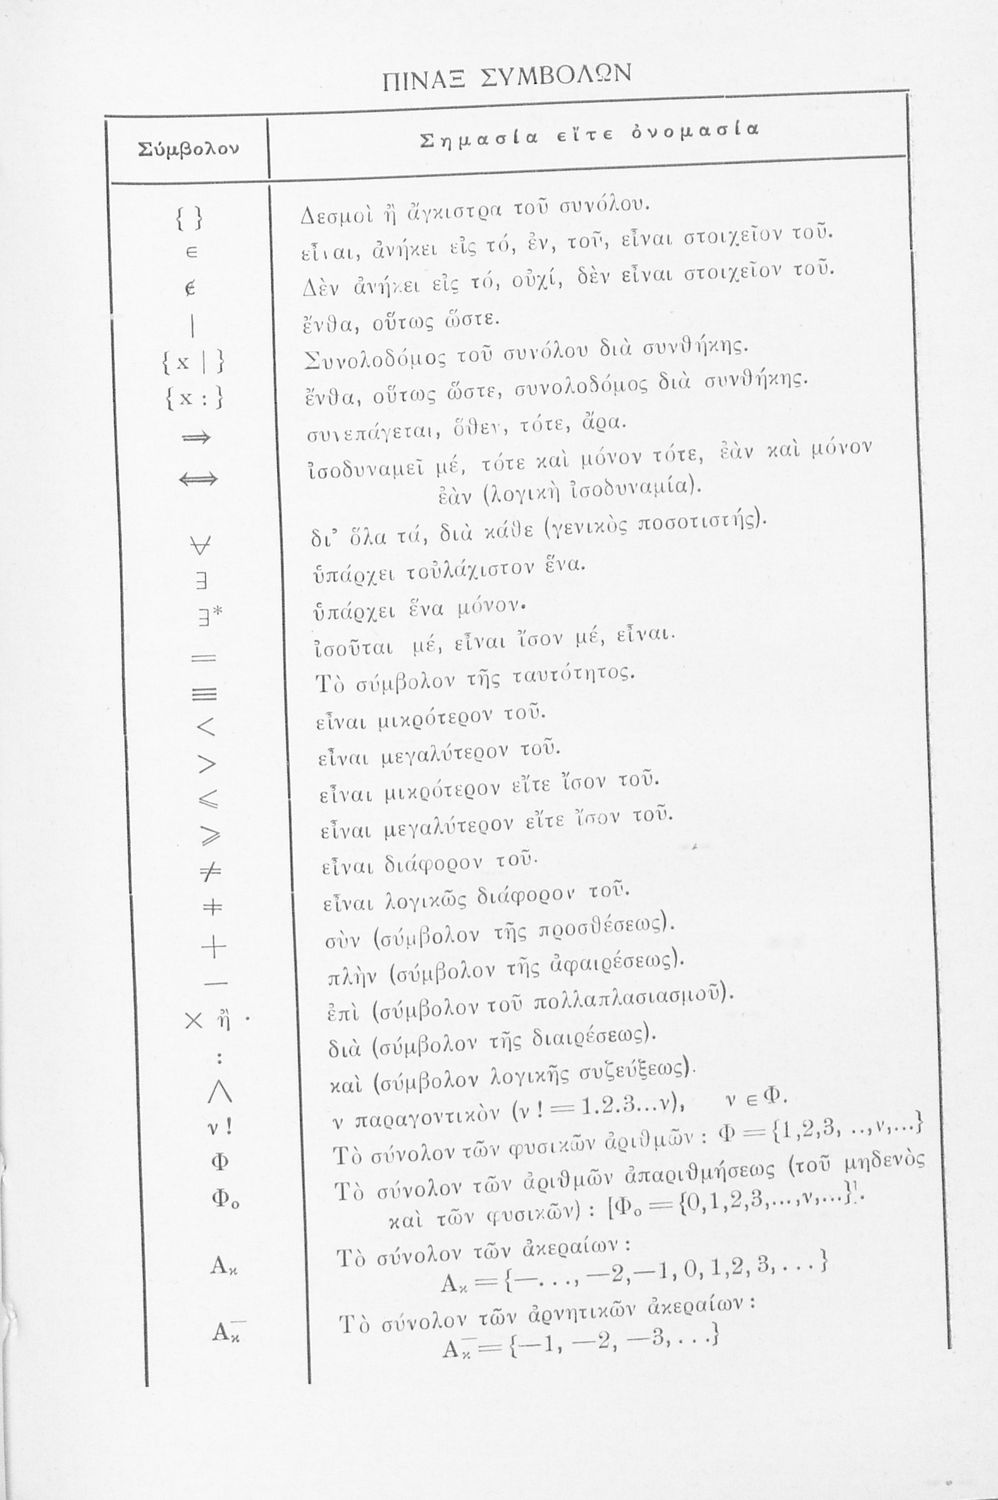 ΠΙΝΑΞ ΣΥΜΒΟΛΩΝ
Σύμβολον Σημασία εἴτε ὀνομασία
{ } Δεσμοὶ ἢ ἄγκιστρα τοῦ συνόλου.
∈ εἶναι, ἀνήκει εἰς τό, ἐν, τοῦ, εἶναι στοιχεῖον τοῦ.
∉ Δὲν ἀνήκει εἰς τό, οὐχί, δὲν εἶναι στοιχεῖον τοῦ.
| ἔνθα, οὕτως ὥστε.
{ x | } Συνολοδόμος τοῦ συνόλου διὰ συνθήκης.
{ x : } ἔνθα, οὕτως ὥστε, συνολοδόμος διὰ συνθήκης.
⇒ συνεπάγεται, ὅθεν, τότε, ἄρα.
⇔ ἰσοδυναμεῖ μέ, τότε καὶ μόνον τότε, ἐὰν καὶ μόνον
ἐὰν (λογικὴ ἰσοδυναμία).
∀ δι' ὅλα τά, διὰ κάθε (γενικὸς ποσοτιστής).
∃ ὑπάρχει τοὐλάχιστον ἕνα.
∃* ὑπάρχει ἕνα μόνον.
= ἰσοῦται μέ, εἶναι ἴσον μέ, εἶναι.
≡ Τὸ σύμβολον τῆς ταυτότητος.
< εἶναι μικρότερον τοῦ.
> εἶναι μεγαλύτερον τοῦ.
⩽ εἶναι μικρότερον εἴτε ἴσον τοῦ.
⩾ εἶναι μεγαλύτερον εἴτε ἴσον τοῦ.
≠ εἶναι διάφορον τοῦ.
⧧ εἶναι λογικῶς διάφορον τοῦ.
+ σὺν (σύμβολον τῆς προσθέσεως).
— πλὴν (σύμβολον τῆς ἀφαιρέσεως).
× ἢ · ἐπὶ (σύμβολον τοῦ πολλαπλασιασμοῦ).
: διὰ (σύμβολον τῆς διαιρέσεως).
⋀ καὶ (σύμβολον λογικῆς συζεύξεως).
ν ! ν παραγοντικὸν (ν ! = 1.2.3...ν), ν ∈ Φ.
Φ Τὸ σύνολον τῶν φυσικῶν ἀριθμῶν : Φ = {1,2,3, ..,ν,...}
Φₒ Τὸ σύνολον τῶν ἀριθμῶν ἀπαριθμήσεως (τοῦ μηδενὸς
καὶ τῶν φυσικῶν) : [Φₒ = {0,1,2,3,...,ν,...}].
Aκ Τὸ σύνολον τῶν ἀκεραίων :
Aκ = {—..., —2,—1, 0, 1,2, 3, . . . }
Aκ⁻ Τὸ σύνολον τῶν ἀρνητικῶν ἀκεραίων :
Aκ⁻ = {—1, —2, —3, . . .}